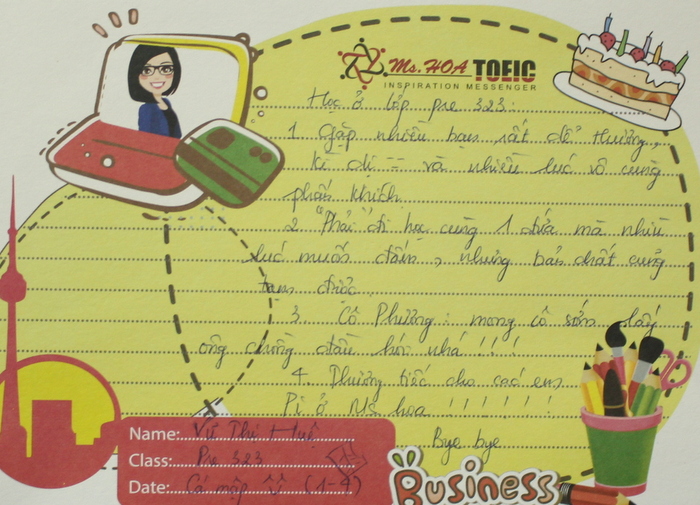 Ms. HOA TOEIC
INSPIRATION MESSENGER
Học ở lớp pre 323:
1. Gặp nhiều bạn rất dễ thương,
kì dị -- và nhiều lúc vô cùng
phấn khích
2 "Phải" đi học cùng 1 đứa mà nhiều
lúc muốn đấm, nhưng bản chất cũng
tạm được.
3. Cô Phương: mong cô sớm lấy
ông chồng đầu hói nhá!!!
4. Thương tiếc cho các em
Pi ở Ms hoa !!!!!!
Bye bye
Name: Vũ Thị Huệ
Class: Pre 323
Date: Cá mập (1-4)
Business